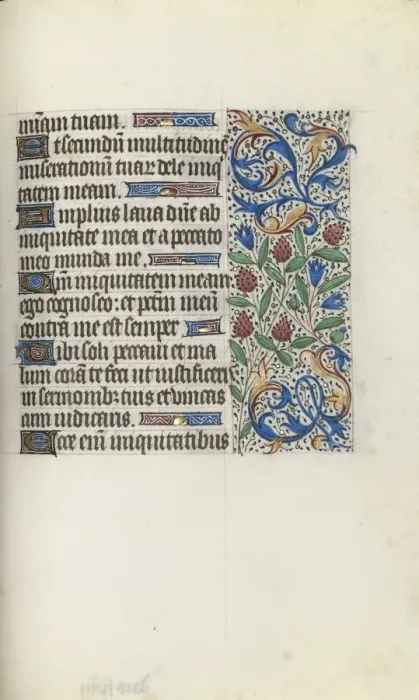 miam tuam.
Et secundu multitudine
miserationum tuar dele iniq
tatem meam.
Amplius laua dne ab
iniquitate mea et a peccato
meo munda me.
Qm iniquitatem meam
ego cognosco: et pctm meu
contra me est semper
Tibi soli peccaui et ma
lum cora te feci ut iustificeris
in sermonib: tuis et vincas
cum iudicaris.
Ecce eni iniquitatibus